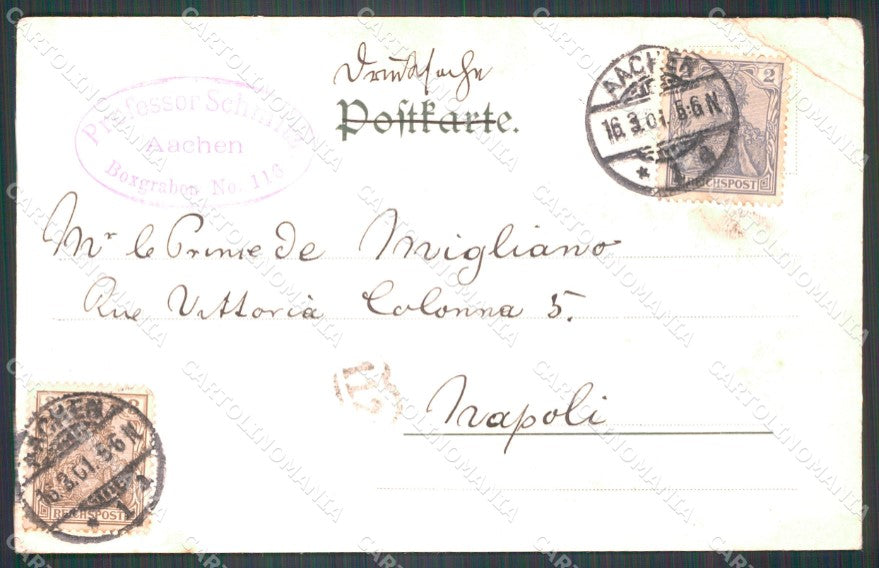 Drucksache
Postkarte.
Professor
Aachen
Boxgraben No. 116
AACHEN
16.3.01. 5-6 N
* 1 d
2
REICHSPOST
Mr le Prince de Migliano
Rue Vittoria Colonna 5.
Napoli
AACHEN
16.3.01. 5-6 N
* 1
REICHSPOST
CARTOLINOMANIA